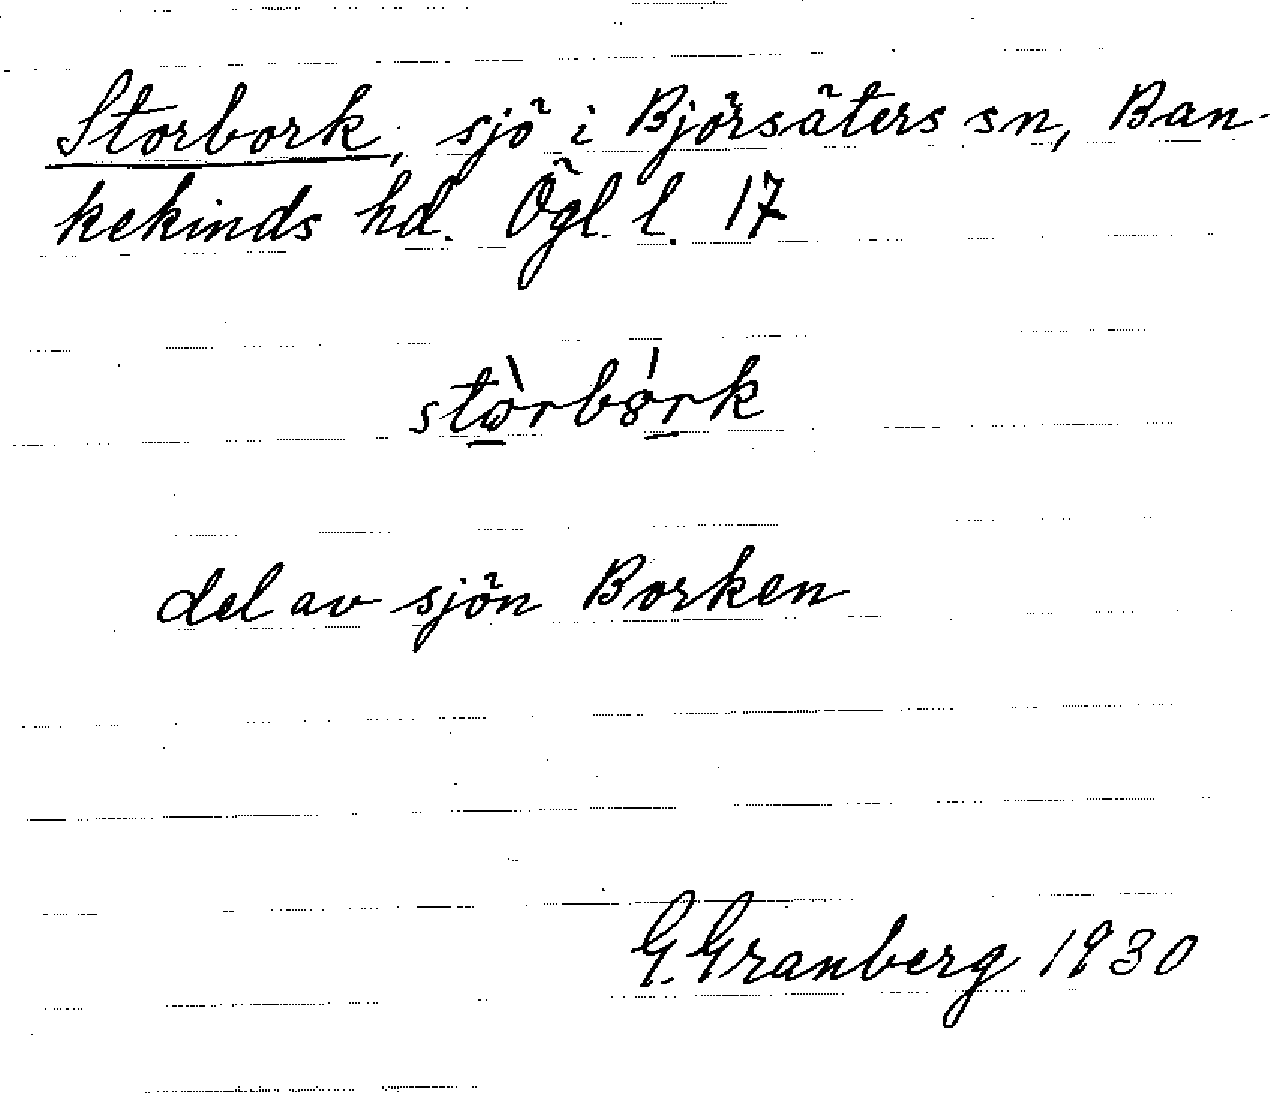 Storbork, sjö i Björsäters sn, Ban-
kekinds hd. Ögl l. 17
stὼ̲rbȣ́r̲k
del av sjön Borken
G. Granberg 1930